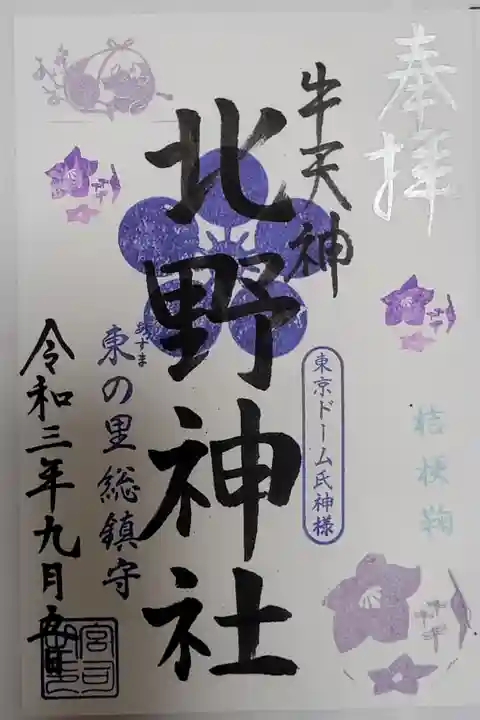 奉拝
牛天神
北野神社
東京ドーム氏神様
桔梗鞠
あずま
東の里総鎮守
令和三年九月
宮司